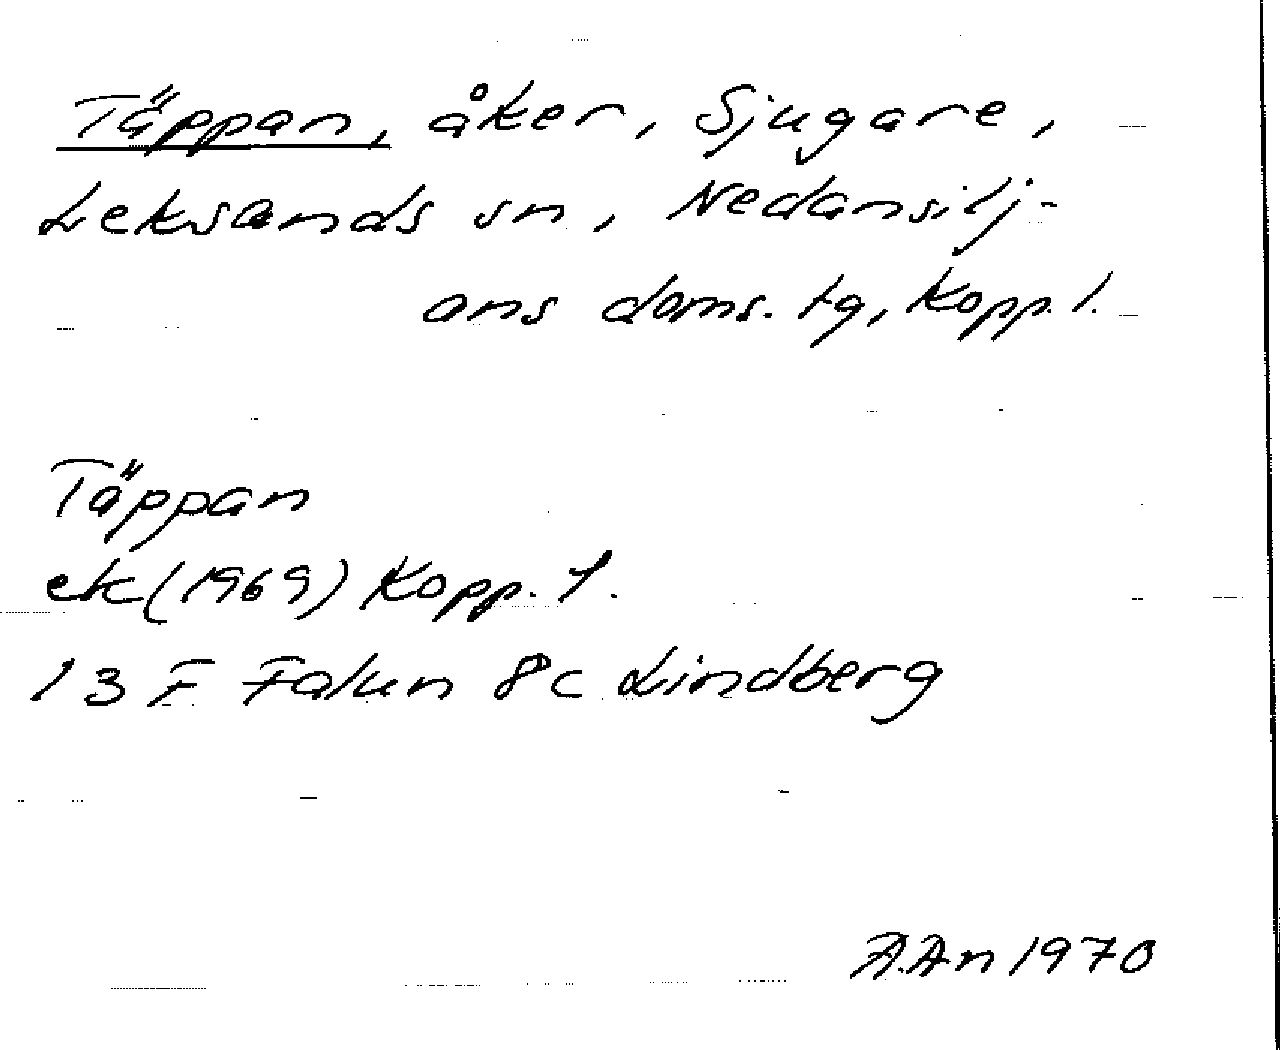 Täppan, åker, Sjugare,
Leksands sn, Nedansilj-
ans doms. tg, Kopp. l.
Täppan
ek (1969) Kopp. l.
13 F Falun 8c Lindberg
A.An 1970